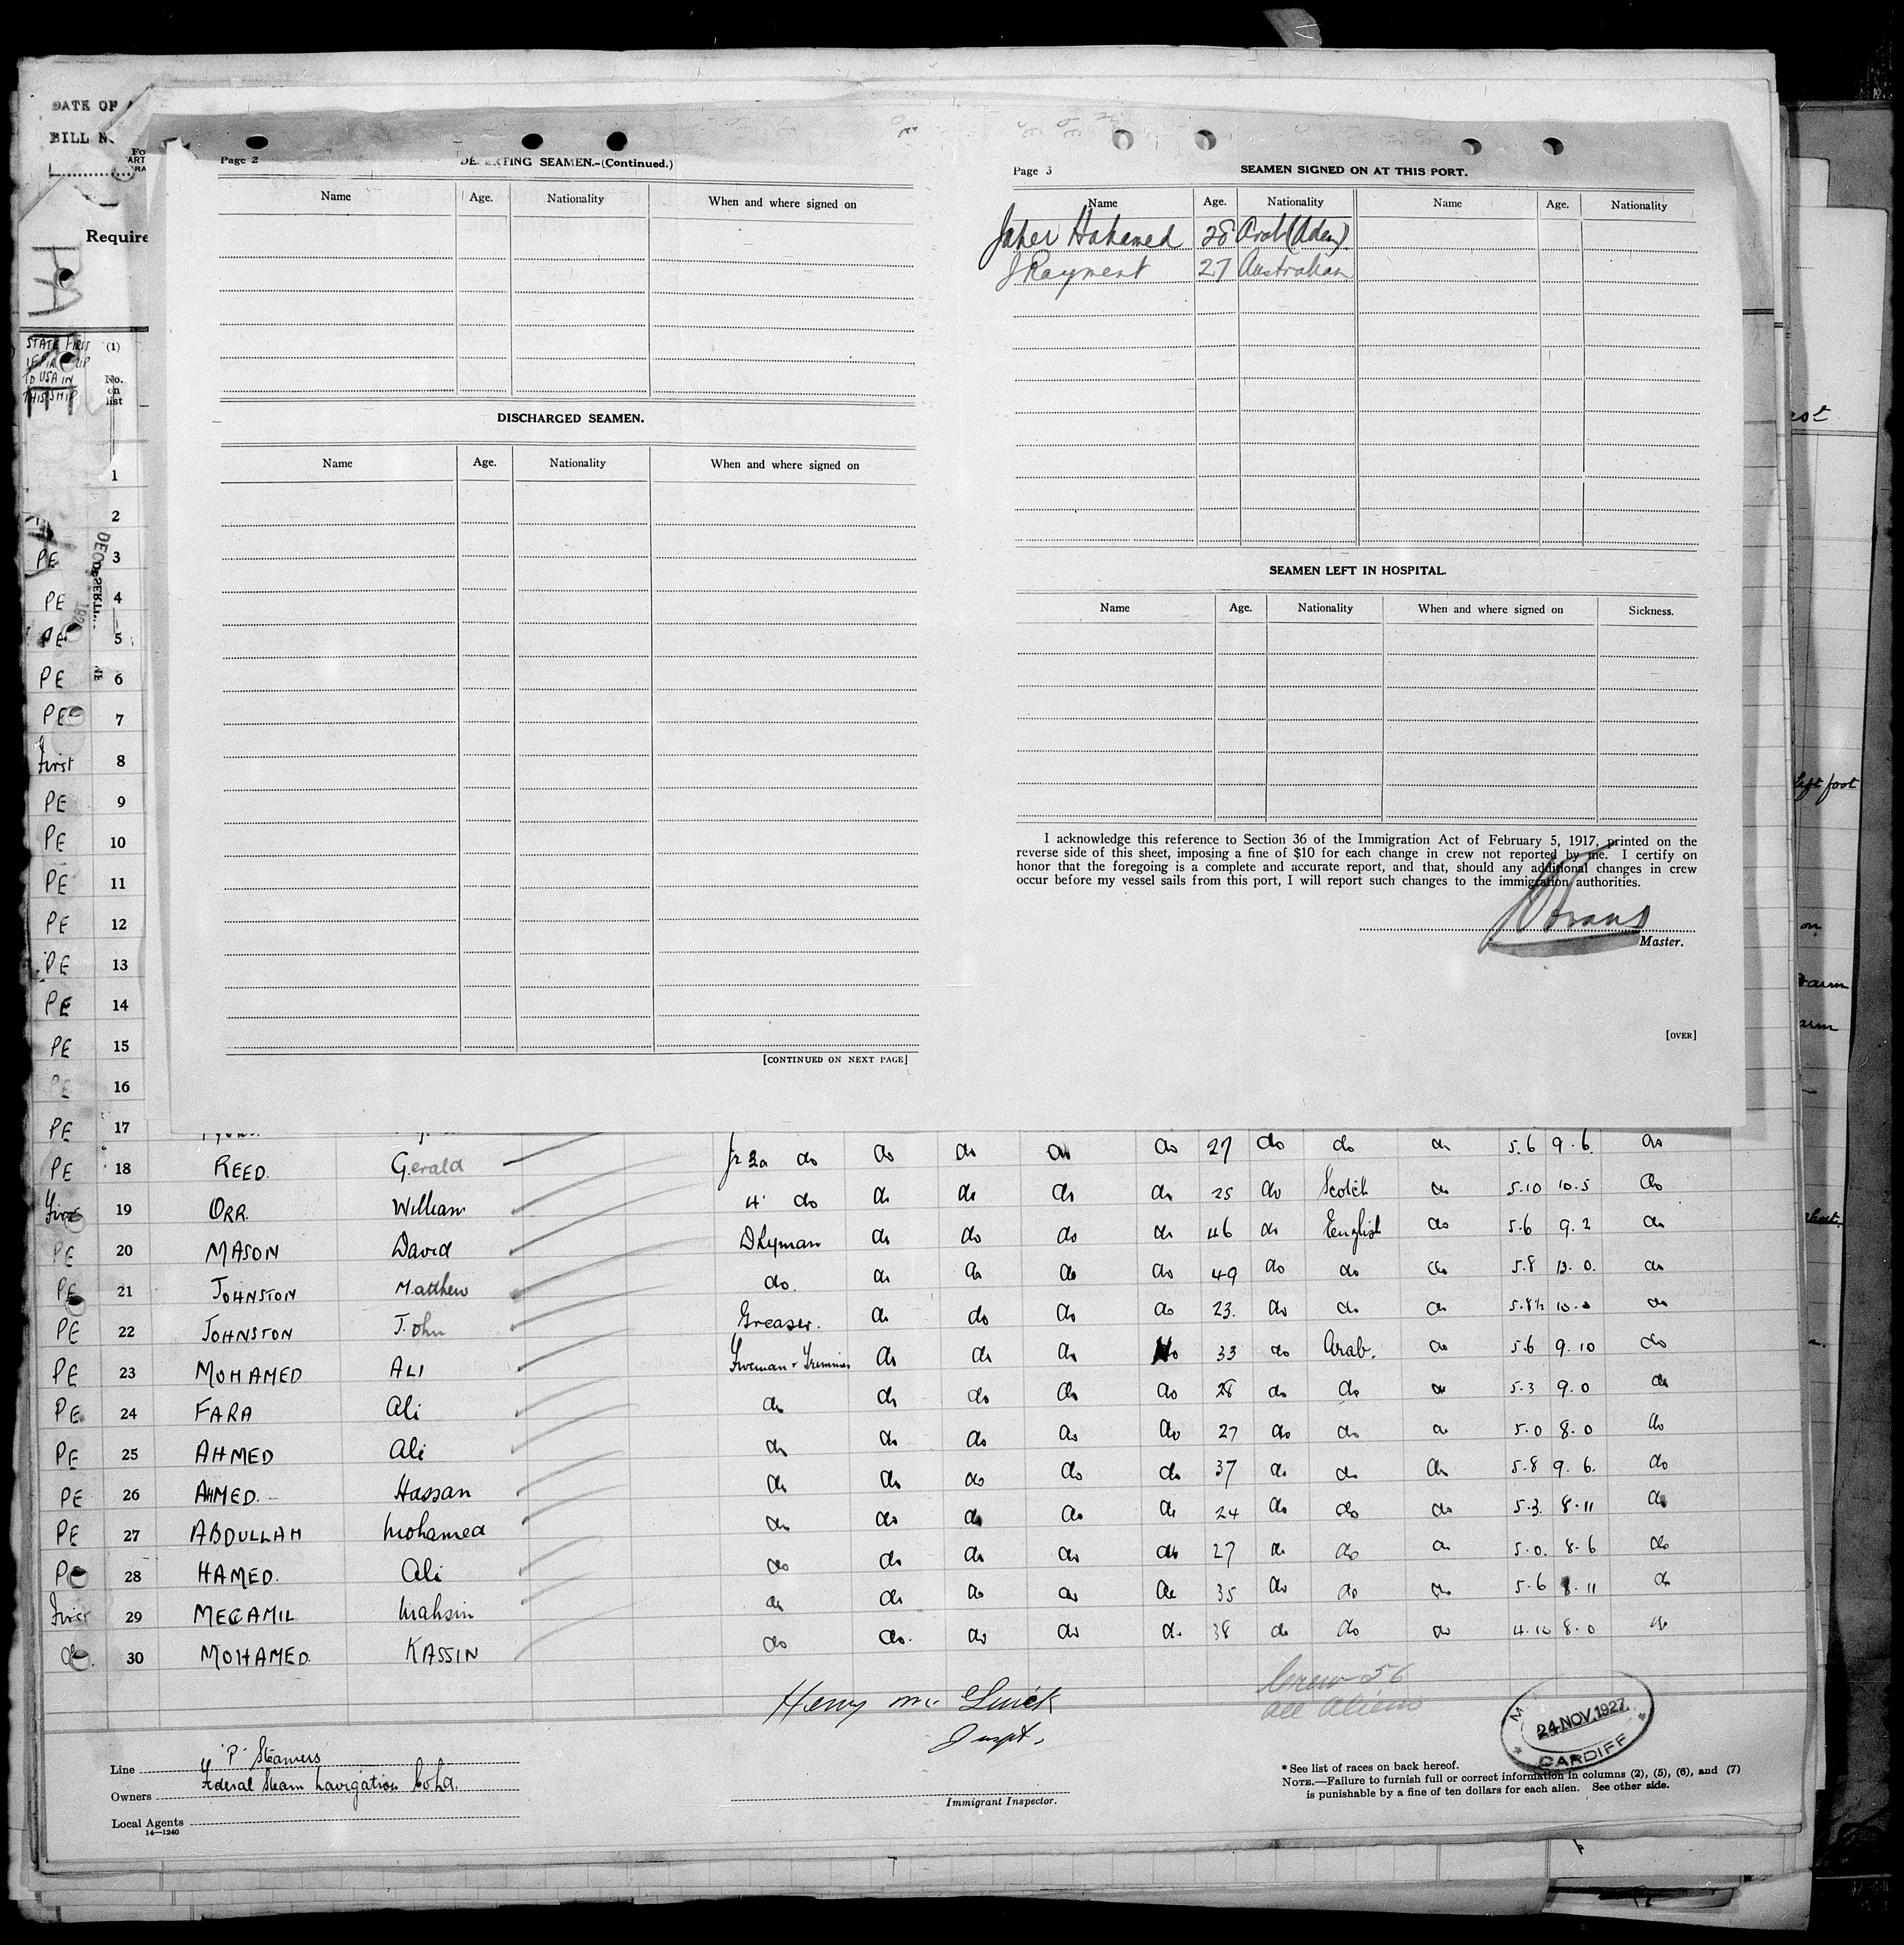 DATE OF A
BILL N
Require
STATE FIRST
TO USA IN
THIS SHIP
(1)
No.
on
list
Page 2
DEPARTING SEAMEN.-(Continued.)
Name Age. Nationality When and where signed on
DISCHARGED SEAMEN.
Name Age. Nationality When and where signed on
[CONTINUED ON NEXT PAGE]
Page 3
SEAMEN SIGNED ON AT THIS PORT.
Name Age. Nationality Name Age. Nationality
Hahamed 28 Arab (Aden)
J Rayment 27 Australian
SEAMEN LEFT IN HOSPITAL.
Name Age. Nationality When and where signed on Sickness.
I acknowledge this reference to Section 36 of the Immigration Act of February 5, 1917, printed on the
reverse side of this sheet, imposing a fine of $10 for each change in crew not reported by me. I certify on
honor that the foregoing is a complete and accurate report, and that, should any additional changes in crew
occur before my vessel sails from this port, I will report such changes to the immigration authorities.
Master.
[OVER]
left foot
1
2
PE 3
PE 4
PE 5
PE 6
PE 7
First 8
PE 9
PE 10
PE 11
PE 12
PE 13
PE 14
PE 15
PE 16
PE 17
PE 18 REED. Gerald Jr 3a do do do do do 27 do do do 5.6 9.6. do
First 19 ORR. William 4 do do do do do 25 do Scotch do 5.10 10.5 do
PE 20 MASON David Dkyman do do do do 46 do English do 5.6 9.2 do
PE 21 JOHNSTON Matthew do. do do do do 49 do do do 5.8 13.0. do
PE 22 JOHNSTON John Greaser. do do do do 23. do do do 5.8½ do
PE 23 MOHAMED ALI Fireman & Trimmer do do do do 33 do Arab. do 5.6 9.10 do
PE 24 FARA Ali do do do do do 28 do do do 5.3 9.0 do
PE 25 AHMED Ali do do do do do 27 do do do 5.0 8.0 do
PE 26 AHMED. Hassan do do do do do 37 do do do 5.8 9.6. do
PE 27 ABDULLAH Mohamed do do do do do 24 do do do 5.3. 8.11 do
PE 28 HAMED. Ali do do do do do 27 do do do 5.0. 8.6 do
First 29 MEGAMIL Mahsin do do do do do 35 do do do 5.6 8.11 do
do. 30 MOHAMED. KASSIN do do. do do do 38 do do do 8.0 do
Crew 56
all Aliens
Henry Mc
Inspt.
24 NOV. 1927
CARDIFF
Line "P" Steamers
Owners Federal Steam Navigation Co Ld.
Local Agents
14—1240
Immigrant Inspector.
* See list of races on back hereof.
NOTE.—Failure to furnish full or correct information in columns (2), (5), (6), and (7)
is punishable by a fine of ten dollars for each alien. See other side.